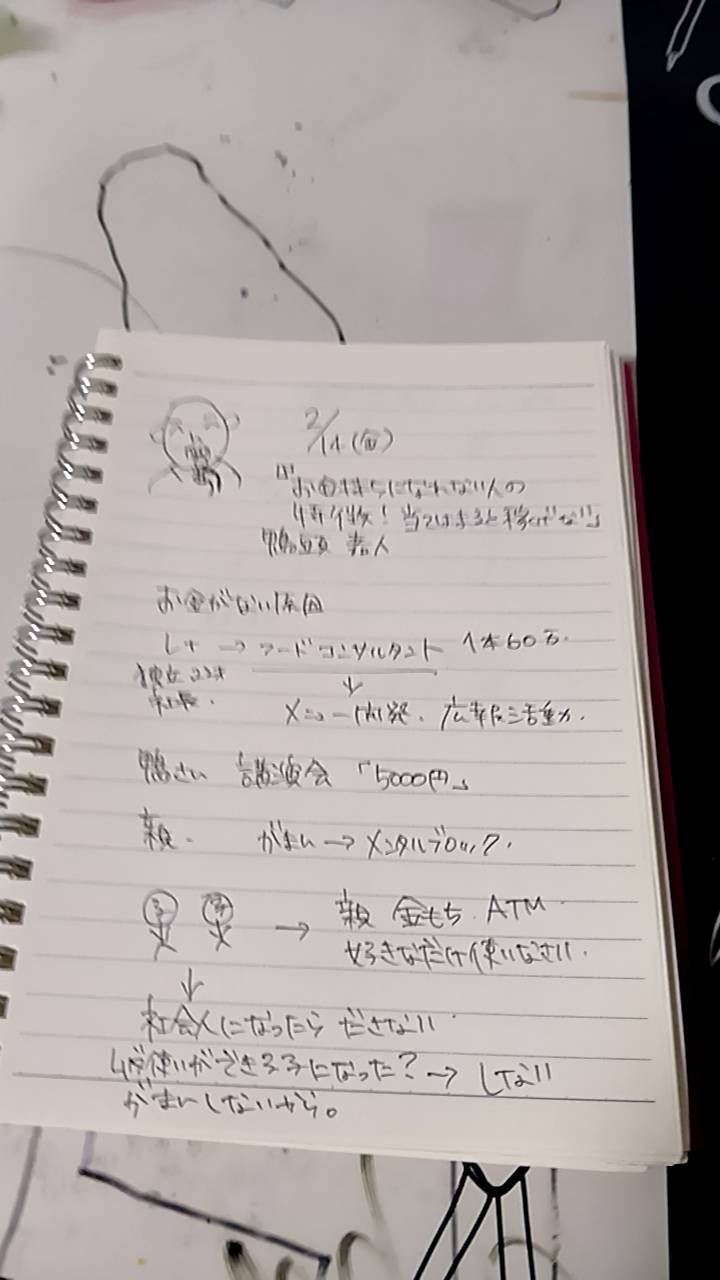 2/14(金)
『お金持ちになれない人の
特徴!当てはまると稼げない』
鴨頭 嘉人
お金がない原因
→ フードコンサルタント 1本60万.
独立
社長.
↓
メニュー開発. 広報活動.
鴨さん 講演会「5000円」
親. がまん→メンタルブロック.
→ 親 金もち ATM
好きなだけ使いなさい.
↓
社会人になったら ださない
ムダ使いができる子になった?→ しない
がまんしないから。